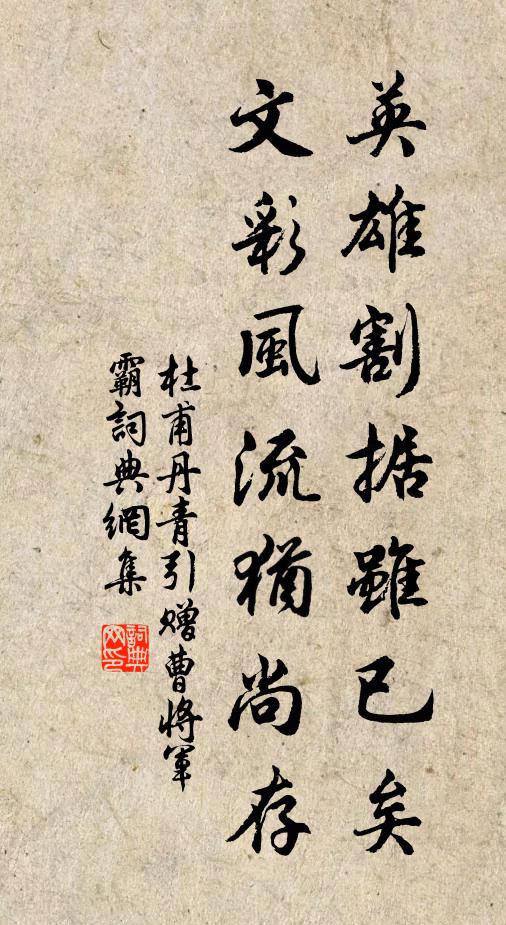 英雄割据雖已矣
文彩風流猶尚存
杜甫丹青引贈曹將軍
霸詞典網集
詞典
网印